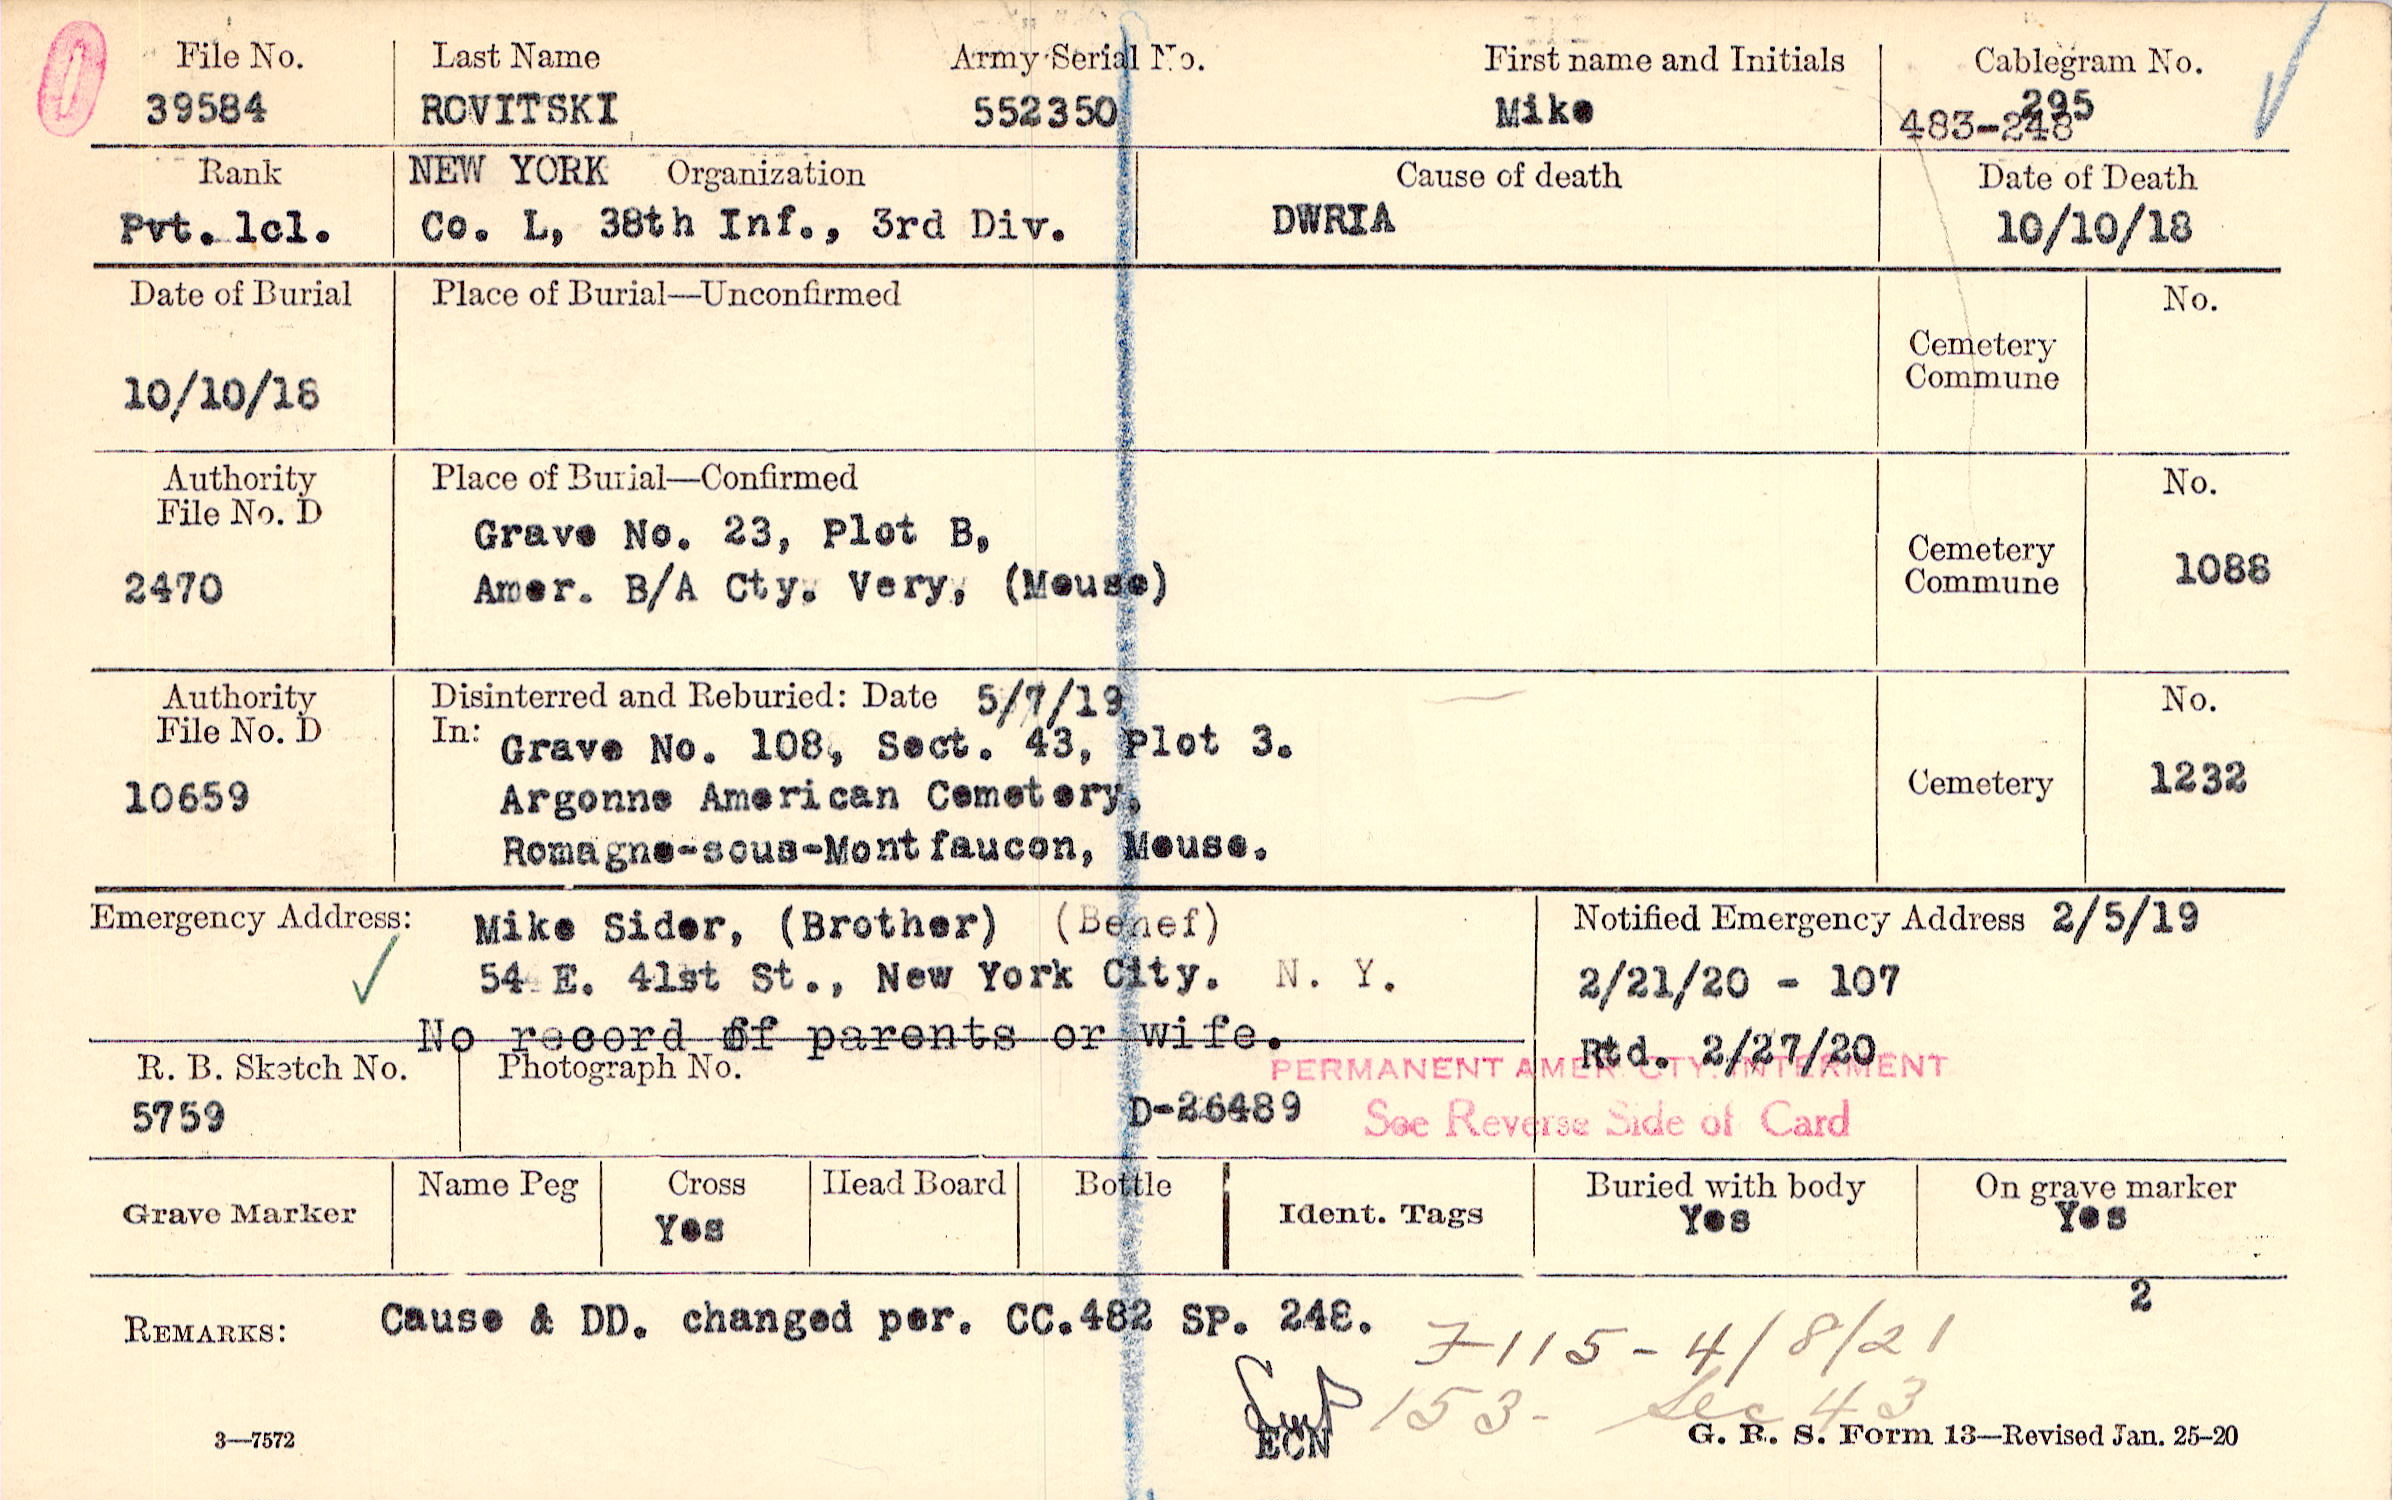 File No. Last Name Army Serial No. First name and Initials Cablegram No.
39584 ROVITSKI 552350 Mike 295
483-248
Rank NEW YORK Organization Cause of death Date of Death
Pvt. 1cl. Co. L, 38th Inf., 3rd Div. DWRIA 10/10/18
Date of Burial Place of Burial—Unconfirmed No.
Cemetery
Commune
10/10/18
Authority Place of Burial—Confirmed No.
File No. D
Grave No. 23, Plot B,
Cemetery
Commune 1088
2470 Amer. B/A Cty. Very, (Meuse)
Authority Disinterred and Reburied: Date 5/7/19 No.
File No. D In: Grave No. 108, Sect. 43, Plot 3.
10659 Argonne American Cemetery, Cemetery 1232
Romagne-sous-Montfaucon, Meuse.
Emergency Address: Mike Sider, (Brother) (Benef) Notified Emergency Address 2/5/19
54 E. 41st St., New York City. N. Y. 2/21/20 - 107
No record of parents or wife. Rtd. 2/27/20
R. B. Sketch No. Photograph No. PERMANENT AMER. CTY. INTERMENT
5759 D-26489 See Reverse Side of Card
Grave Marker Name Peg Cross Head Board Bottle Ident. Tags Buried with body On grave marker
Yes Yes Yes
2
REMARKS: Cause & DD. changed per. CC.482 SP. 248.
F115-4/8/21
153- Sec 43
ECN
3—7572 G. R. S. Form 13—Revised Jan. 25-20